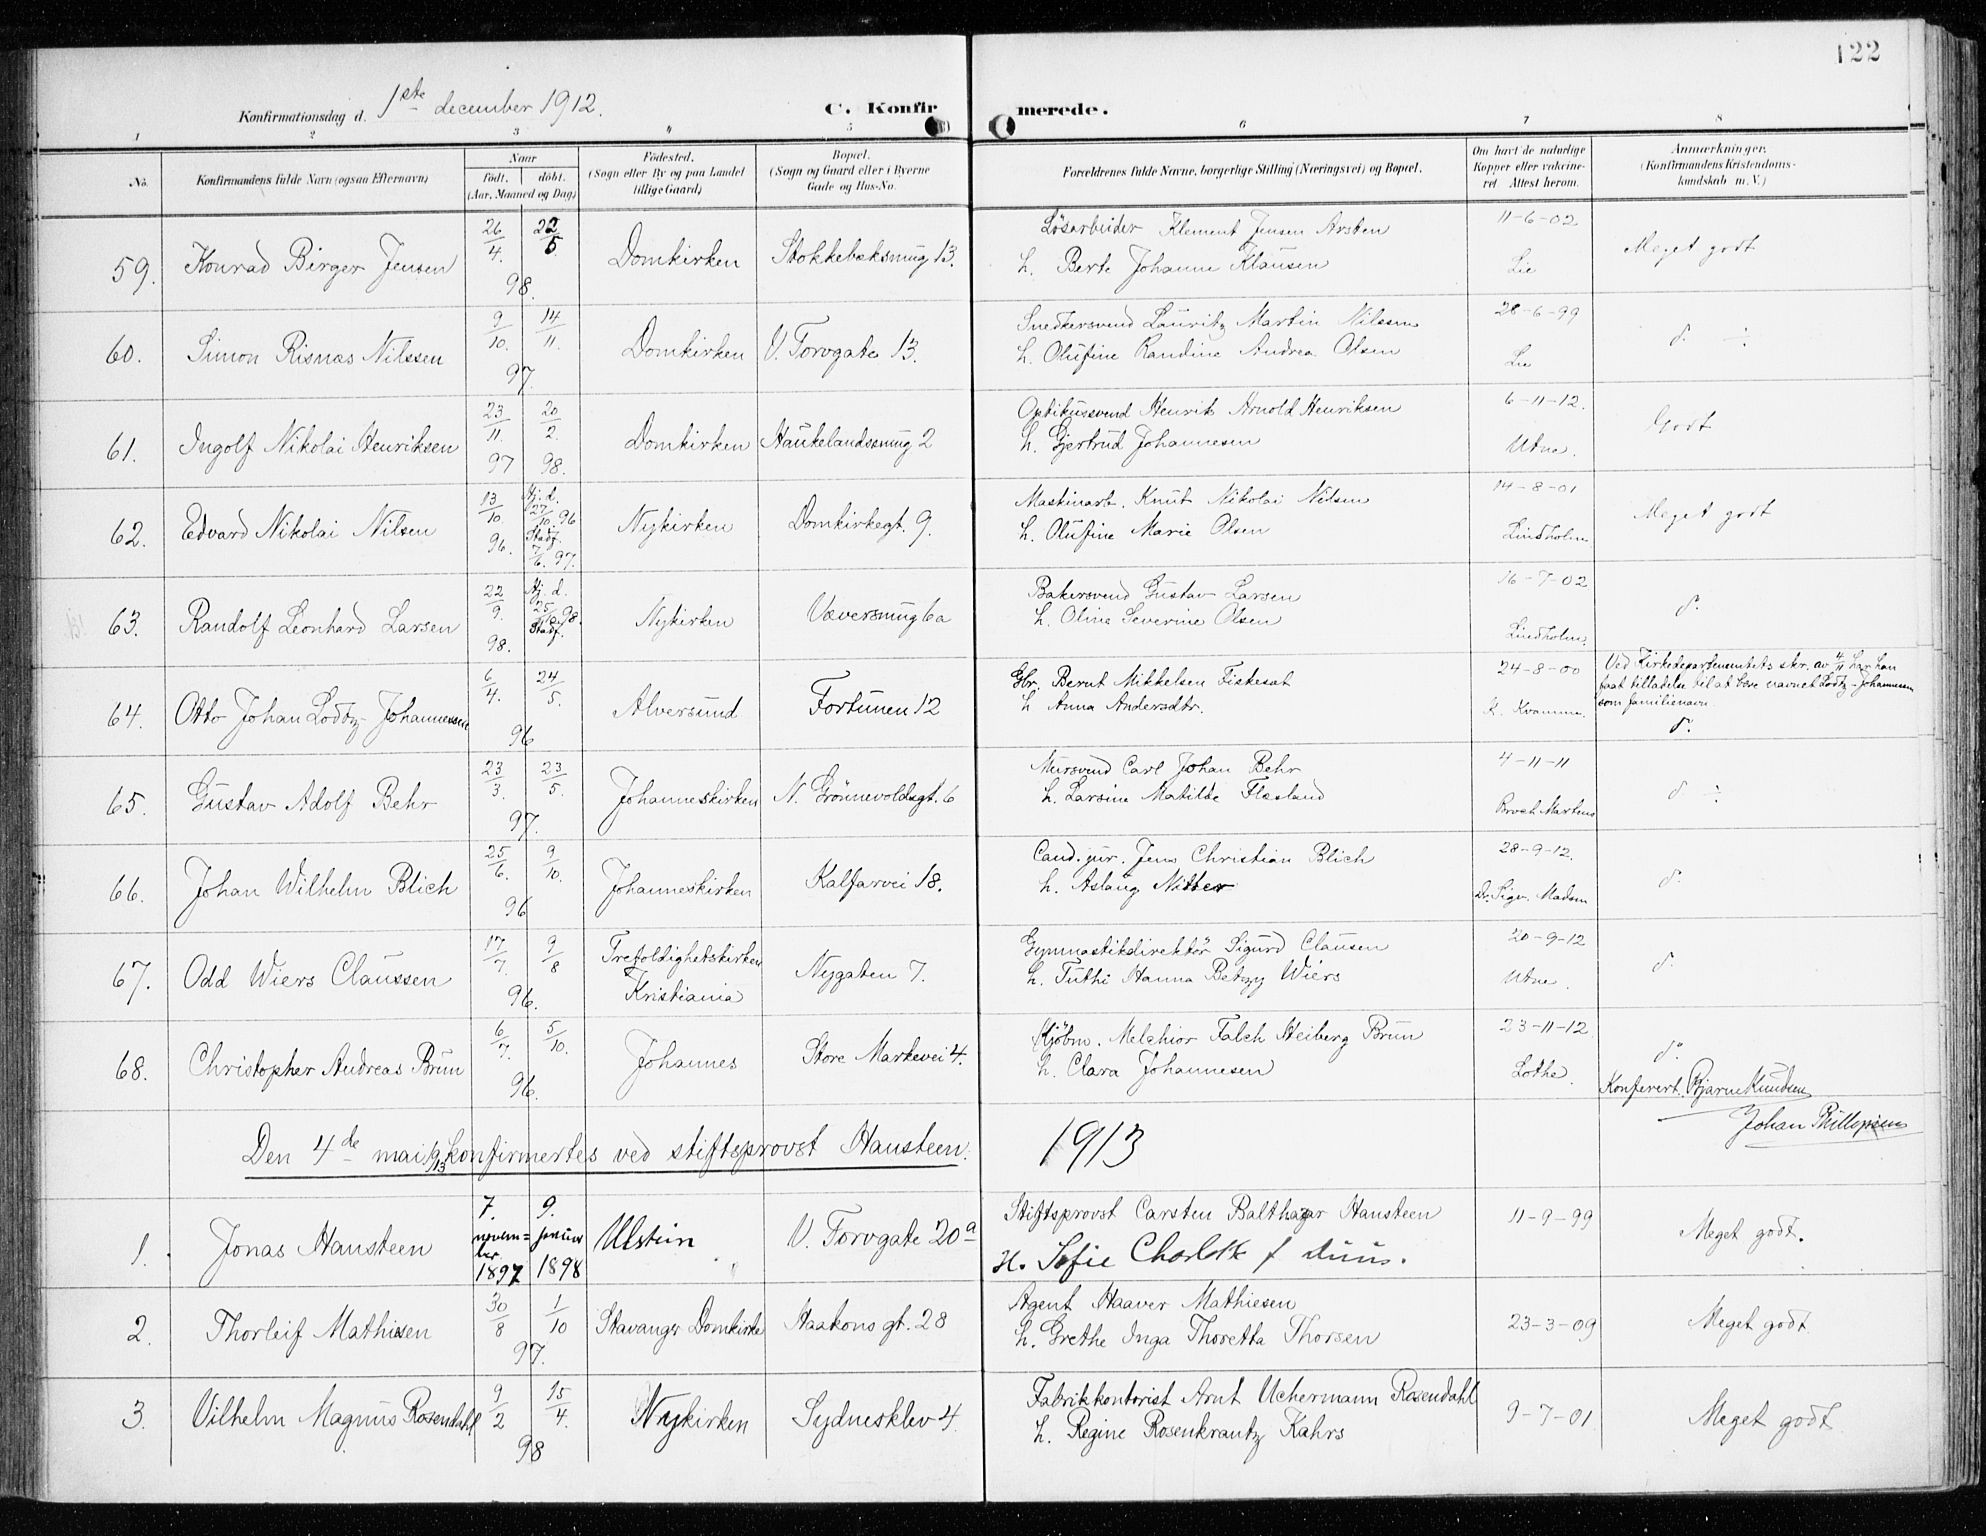 122
Konfirmationsdag d. 1ste december 1912.
C. Konfirmerede.
1 2 3 4 5 6 7 8
No.
Konfirmandens fulde Navn (ogsaa Efternavn)
Naar
født. døbt.
(Aar, Maaned og Dag)
Fødested.
(Sogn eller By og paa Landet
tillige Gaard)
Bopæl.
(Sogn og Gaard eller i Byerne
Gade og Hus-No.
Forældrenes fulde Navne, borgerlige Stilling (Næringsvei) og Bopæl.
Om havt de naturlige
Kopper eller vakcine-
ret. Attest herom.
Anmærkninger.
(Konfirmandens Kristendoms-
kundskab m. V.)
59. Konrad Birger Jensen 26/4. 22/5 98. Domkirken Stokkebæksmug 13.
Løsarbeider Klement Jensen Arsten
h. Berte Johanne Klausen
11-6-02
Lie
Meget godt
60. Simon Risnæs Nilssen 9/10. 14/11. 97. Domkirken V. Torvgate 13.
Snedkersvend Lauritz Martin Nilssen
h. Olufine Randine Andrea Olsen
28-6-99
Lie
d. ÷
61. Ingolf Nikolai Henriksen 23/11. 97 20/2. 98. Domkirken Haukelandssmug 2
Optikussvend Henrik Arnold Henriksen
h. Gjertrud Johannesen
6-11-12.
Utne.
Godt
62. Edvard Nikolai Nilsen 13/10 96. Hj. d. 27/10. 96 Stadf. 7/6. 97. Nykirken Domkirkegt. 9.
Maskinarb. Knut Nikolai Nilsen
h. Olufine Marie Olsen
14-8-01
Lindholm
Meget godt
63. Randolf Leonhard Larsen 22/9. 98. Hj. d. 25/ 98. Stadf. Nykirken Væversmug 6a
Bakersvend Gustav Larsen
h. Oline Severine Olsen
16-7-02
Lindholm.
d.
64. Otto Johan Lodtz-Johannessen 6/4. 24/5. 96 Alversund Fortunen 12
Gbr. Bernt Mikkelsen Fiskesat
h Anna Andersdtr.
24-8-00
K. Kvamme.
Ved Kirkedepartementets skr. av 4/11 har han
faat tilladelse til at bære navnet Lodtz-Johannessen
som familienavn.
d.
65. Gustav Adolf Behr 23/3. 23/5. 97. Johanneskirken N. Grönnevoldsgt. 6
Mursvend Carl Johan Behr
h. Larsine Matilde Flesland
4-11-11
Provst Martens
d ÷
66. Johan Wilhelm Blich 25/6. 9/10. 96 Johanneskirken Kalfarvei 18.
Cand. jur. Jens Christian Blich
h. Aslaug Nitter
28-9-12.
Dr. Sigv. Madsen
d.
67. Odd Wiers Claussen 17/7. 9/8 96. Trefoldighetskirken Kristiania Nygaten 7.
Gymnastikdirektör Sigurd Clausen
h. Tuthi Hanna Betzy Wiers
20-9-12
Utne.
d.
68. Christopher Andreas Brun 6/7. 5/10. 96. Johannes Store Markevei 4.
Kjöbm. Melchior Falch Heiberg Brun
h. Clara Johannesen
23-11-12
Lothe.
d.
Konfevert. Bjarne Knudsen
Johan
Den 4de mai 1913 konfirmertes ved stiftsprovst Hansteen.
1913
1. Jonas Hansteen 7. novem=ber 1897 9. januar 1898 Ulstein V. Torvgate 20a
Stiftsprovst Carsten Balthazar Hansteen
H. Sofie Charlotte f Duus.
11-9-99
Meget godt.
2. Thorleif Mathiesen 30/8 1/10 97. Stavanger Domkirke Haakons gt. 28
Agent Haaver Mathiesen
h. Grethe Inga Thoretta Thorsen
23-3-09
Meget godt.
3. Vilhelm Magnus Rosendahl 9/2 15/4. 98 Nykirken Sydnesklev 4.
Fabrikkontorist Arnt Uchermann Rosendahl
h. Regine Rosenkrantz Kahrs
9-7-01
Meget godt